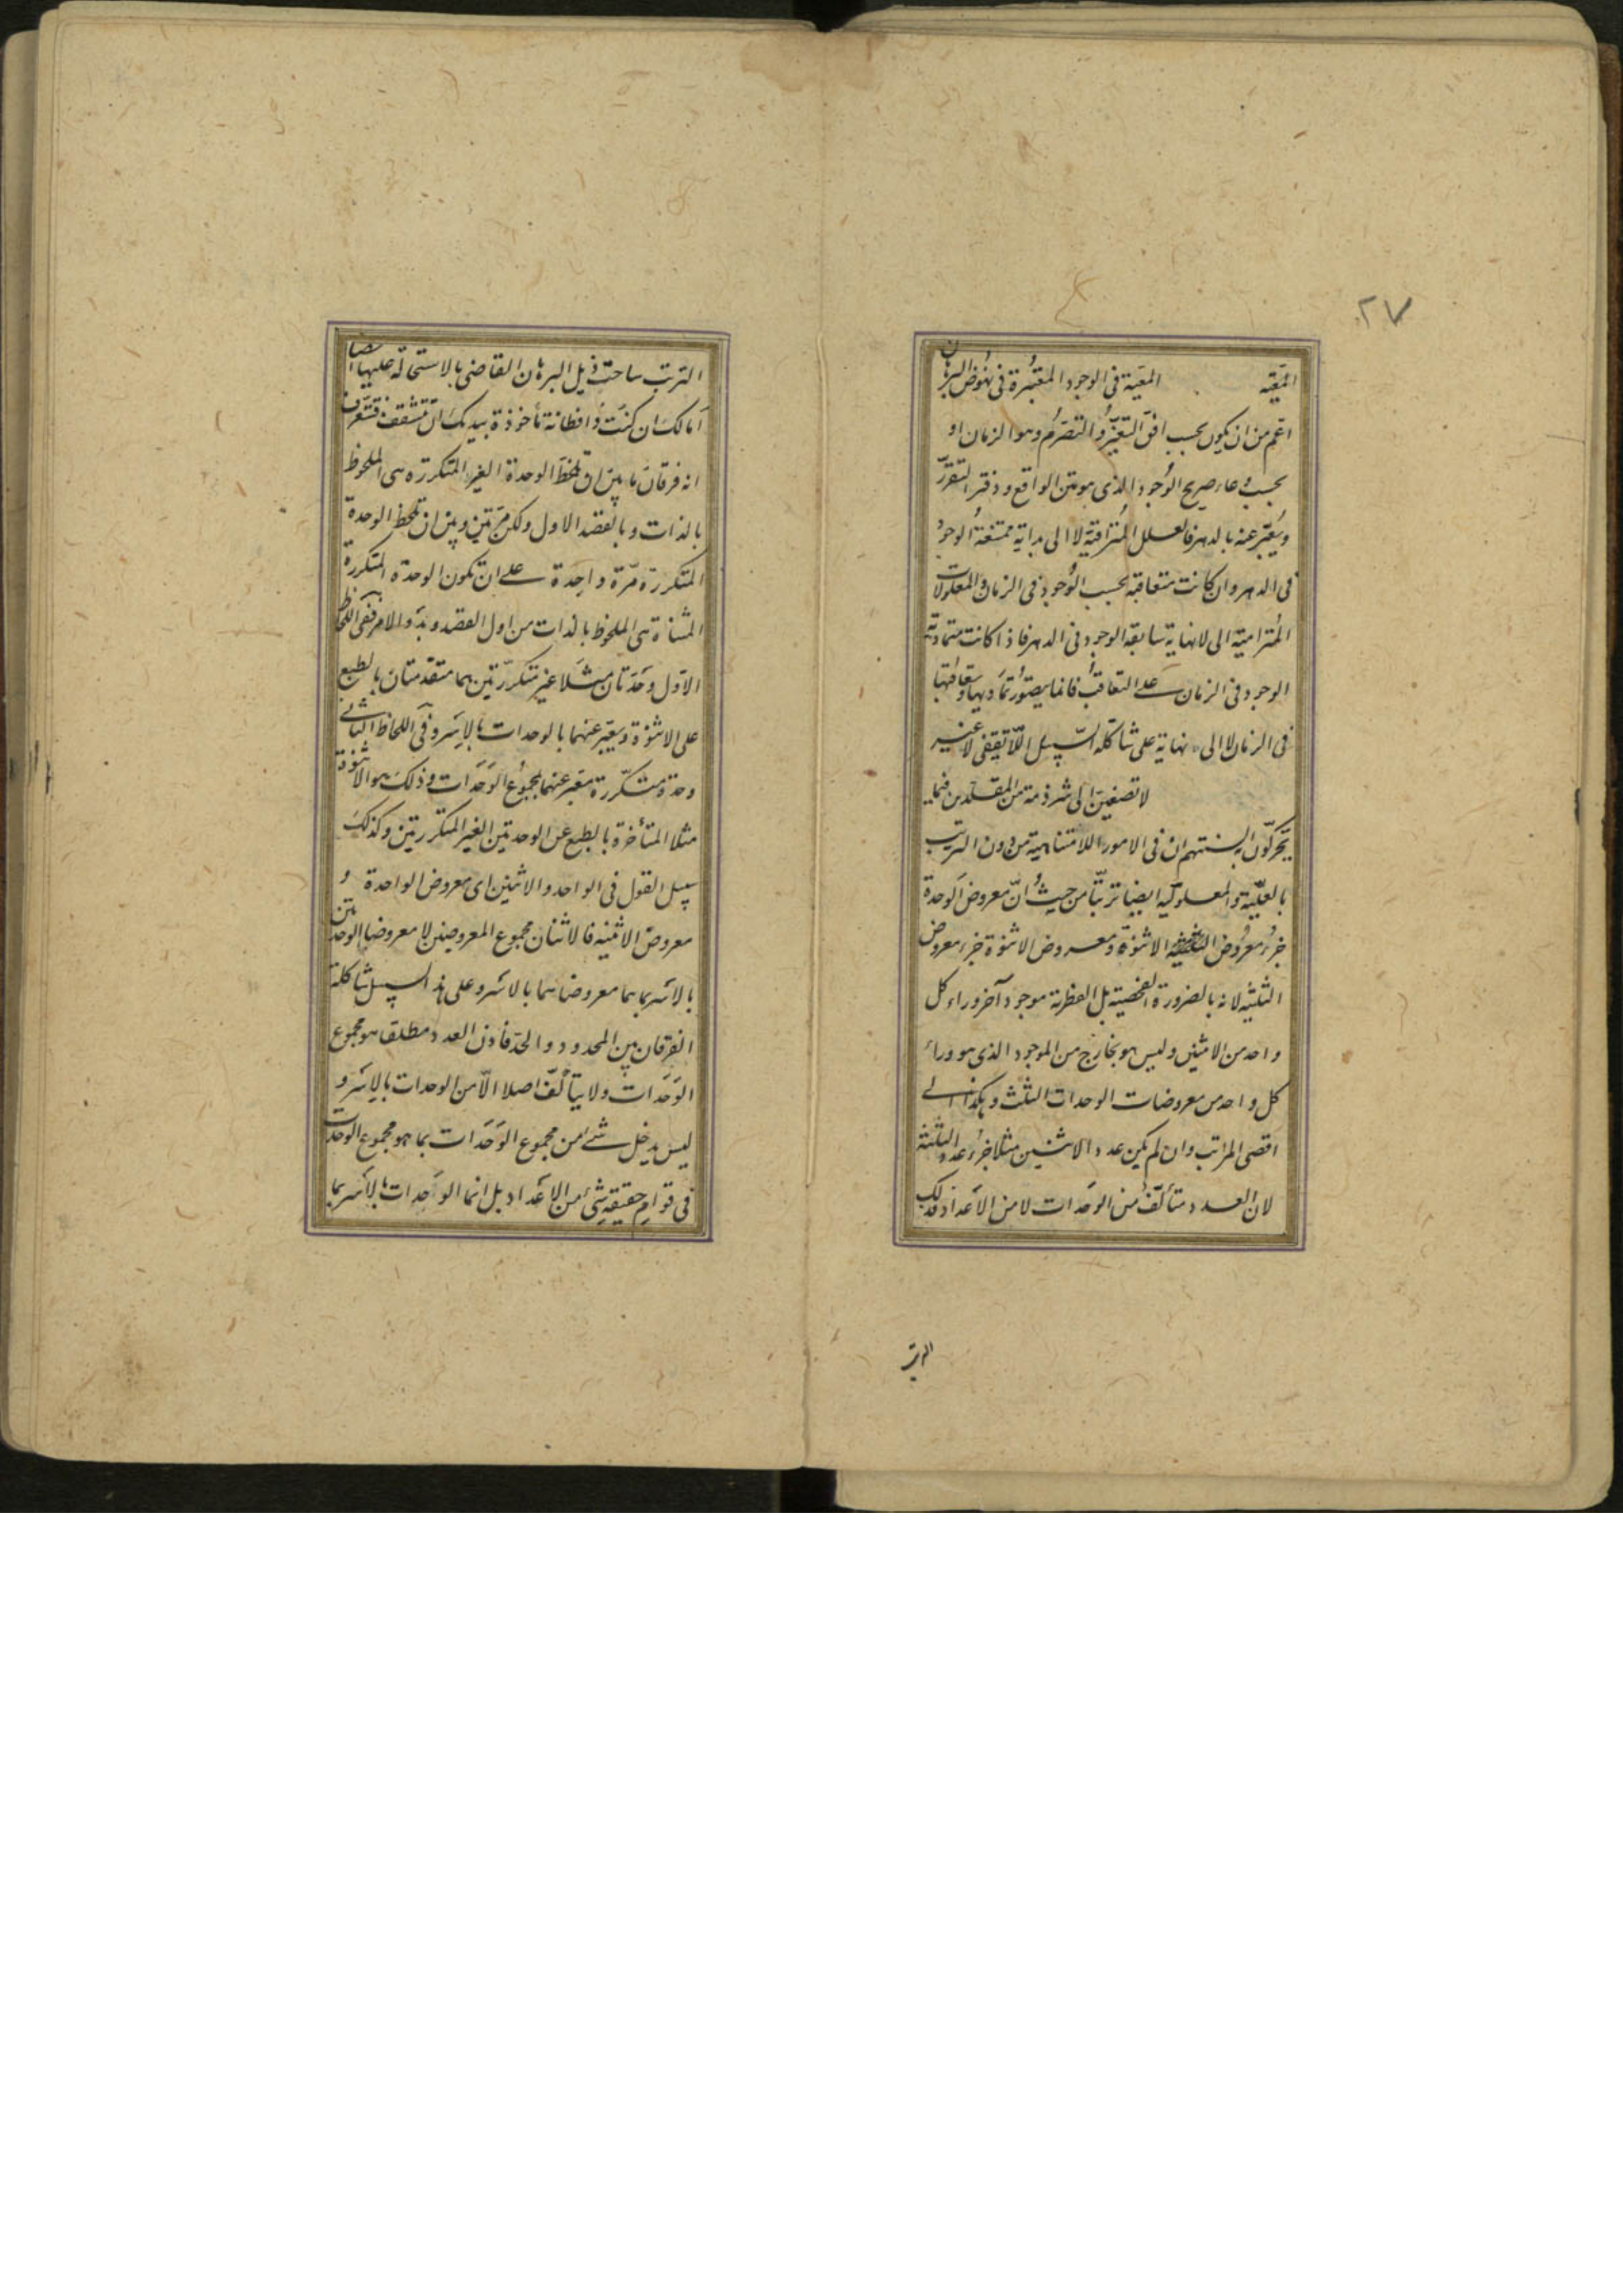 ٢٧
المعية المعية فى الوجود المعتبرة فى نهوض البرهان
اعم من ان يكون بحسب افق التغير و التصرم و هو الزمان او
بحسب وعاء صريح الوجود الذى هو متن الواقع و دفتر التقرر
و يعبر عنه بالدهر فالعلل المترافية لا الى بداية ممتنعة الوجود
فى الدهر و ان كانت متعاقبة بحسب الوجود فى الزمان و المعلولات
المترامية الى لا نهاية سابقة الوجود فى الدهر فاذا كانت متمادية
الوجود فى الزمان على التعاقب فانما يتصور تماديها و تعاقبها
فى الزمان لا الى نهاية على شاكلة السبيل اللا تقفى لا غير
لا تصغين الى شرذمة من المقلدين فيما
يحركون السنتهم ان فى الامور اللامتناهية من دون الترتب
بالعلية و المعلولية ايضا ترتبا من حيث ان معروض الوحدة
جزء معروض الاثنوة و معروض الاثنوة جزء معروض
الثلثية لانه بالضرورة الفحصية بل الفطرية موجود آخر وراء كل
واحد من الاثنين و ليس هو بخارج من الموجود الذى هو وراء
كل واحد من معروضات الوحدات الثلث و هكذا الى
اقصى المراتب و ان لم يكن عدد الاثنين مثلا جزء عدد الثلثة
لان العدد متألف من الوحدات لا من الاعداد فذلك
الترتب
الترتب ساحت ذيل البرهان القاضى بالاستحالة عليها ايضا
أما لك ان كنت ذا فطانة مأخوذة بيديك ان تتثقف فتتعرف
انه فرقان ما بين ان تلحظ الوحدة الغير المتكررة هى الملحوظ
بالذات و بالقصد الاول و لكن مرتين و بين ان تلحظ الوحدة
المتكررة مرة واحدة على ان تكون الوحدة المتكررة
المثناة هى الملحوظ بالذات من اول القصد و بدو الامر ففى اللحاظ
الاول وحدتان مثلا غير متكررتين هما متقدمتان بالطبع
على الاثنوة و يعبر عنهما بالوحدات بالاسر و فى اللحاظ الثانى
وحدة متكررة يعبر عنهما بمجموع الوحدات و ذلك هو الاثنوة
مثلا المتأخرة بالطبع عن الوحدتين الغير المتكررتين و كذلك
سبيل القول فى الواحد و الاثنين اى معروض الواحدة و
معروض الاثنينية فالاثنان مجموع المعروضين لا معروضا الوحدتين
بالاسر بما هما معروضاهما بالاسر و على هذا السبيل شاكلة
الفرقان بين المحدود و الحد فاذن العدد مطلقا هو مجموع
الوحدات و لا يتألف اصلا الا من الوحدات بالاسر و
ليس يدخل شىء من مجموع الوحدات بما هو مجموع الوحدات
فى قوام حقيقة شىء من الاعداد بل انما الوحدات بالاسر بما